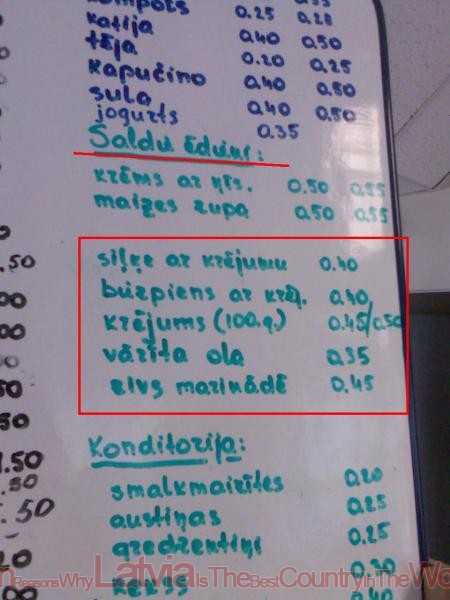 kompots 0.35
kafija 0.25 0.28
tēja 0.40 0.50
kapučino 0.20 0.25
sula 0.40 0.50
jogurts 0.40 0.50
0.35
Saldie ēdieni:
krēms ar ķīs. 0.50 0.55
maizes zupa 0.50 0.55
siļķe ar krējumu 0.40
būzpiens ar krēj. 0.40
krējums (100.g.) 0.45/0.50
vārīta ola 0.35
zivs marinādē 0.45
Konditoreja:
smalkmaizītes 0.20
austiņas 0.25
gredzentiņi 0.25
0.30
kekss 0.40
.50
00
00
50
50
1.50
.50
.50
20
00
ReasonsWhy Latvia IsTheBestCountryInTheWo